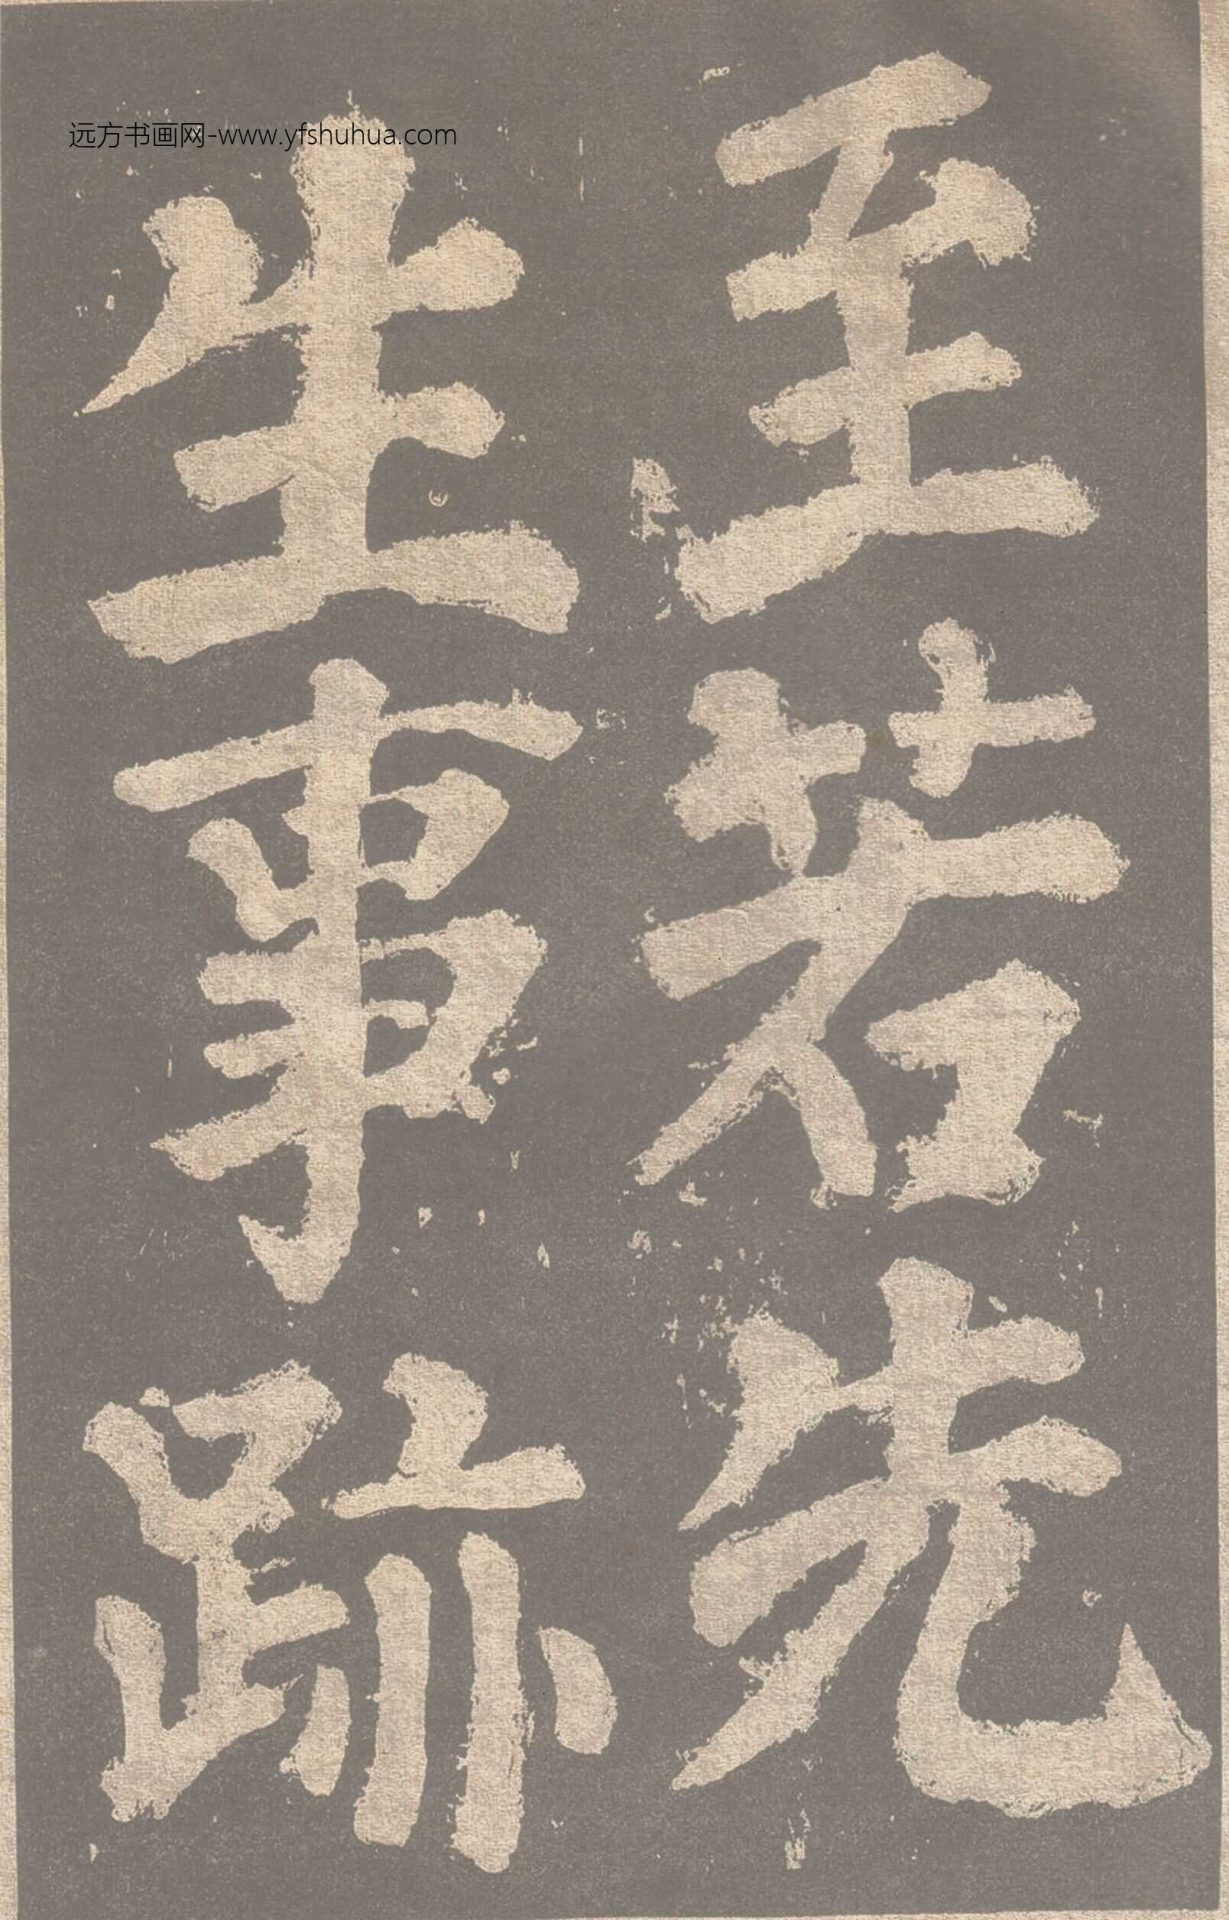 远方书画网-www.yfshuhua.com
至若先
生事跡